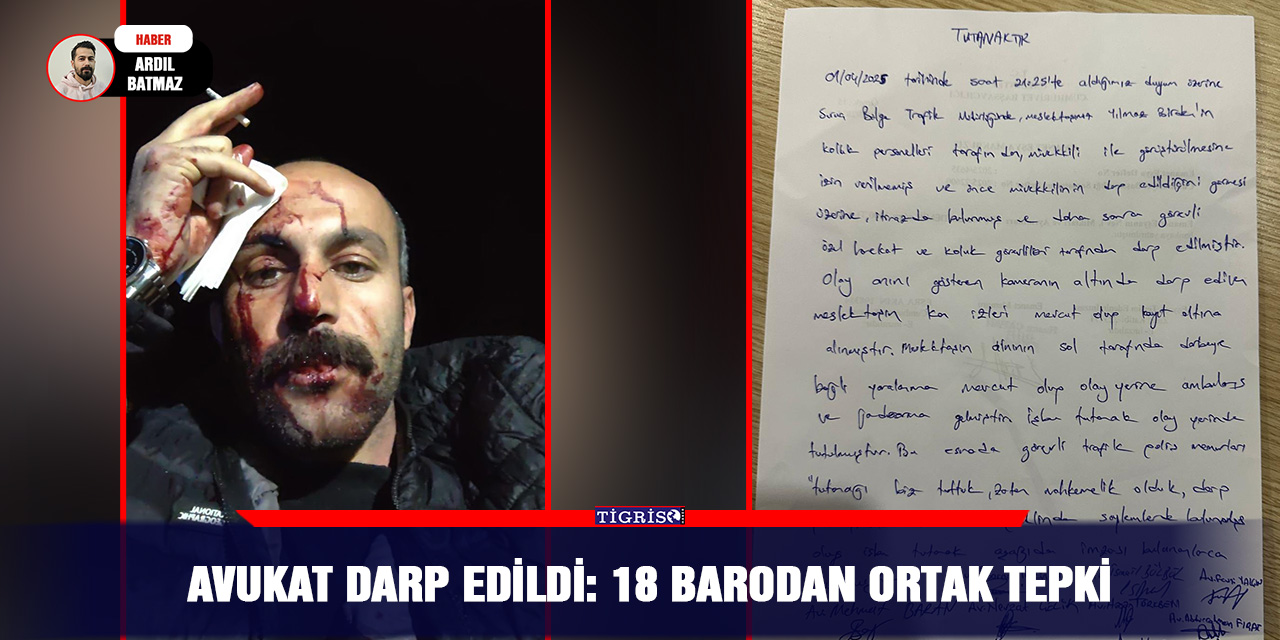 HABER
ARDIL
BATMAZ
TUTANAKTIR
01/04/2025 tarihinde saat 21:25'te aldığımız duyum üzerine
Suruç Bölge Trafik Müdürlüğünde, meslektaşımız Yılmaz Birak'in
kolluk personelleri tarafından, müvekkili ile görüştürülmesine
izin verilmemiş ve önce müvekkilinin darp edildiğini görmesi
üzerine, itirazda bulunmuş ve daha sonra görevli
özel harekat ve kolluk görevlileri tarafından darp edilmiştir.
Olay anını gösteren kameranın altında darp edilen
meslektaşın kan izleri mevcut olup kayıt altına
alınmıştır. Meslektaşın alnının sol tarafında darbeye
bağlı yaralanma mevcut olup olay yerine ambulans
ve gelmiştir. İşbu tutanak olay yerinde
tutulmuştur. Bu esnada görevli trafik polis memurları
"tutanağı biz tuttuk, zaten mahkemelik olduk, darp
söylemlerde bulunmuş
olup işbu tutanak aşağıda imzası bulunanlarca
Av. Mehmet BARAN Av.
Av. Abdurrahman FIRAT
NATIONAL
GEOGRAPHIC
TİGRİS
AVUKAT DARP EDİLDİ: 18 BARODAN ORTAK TEPKİ